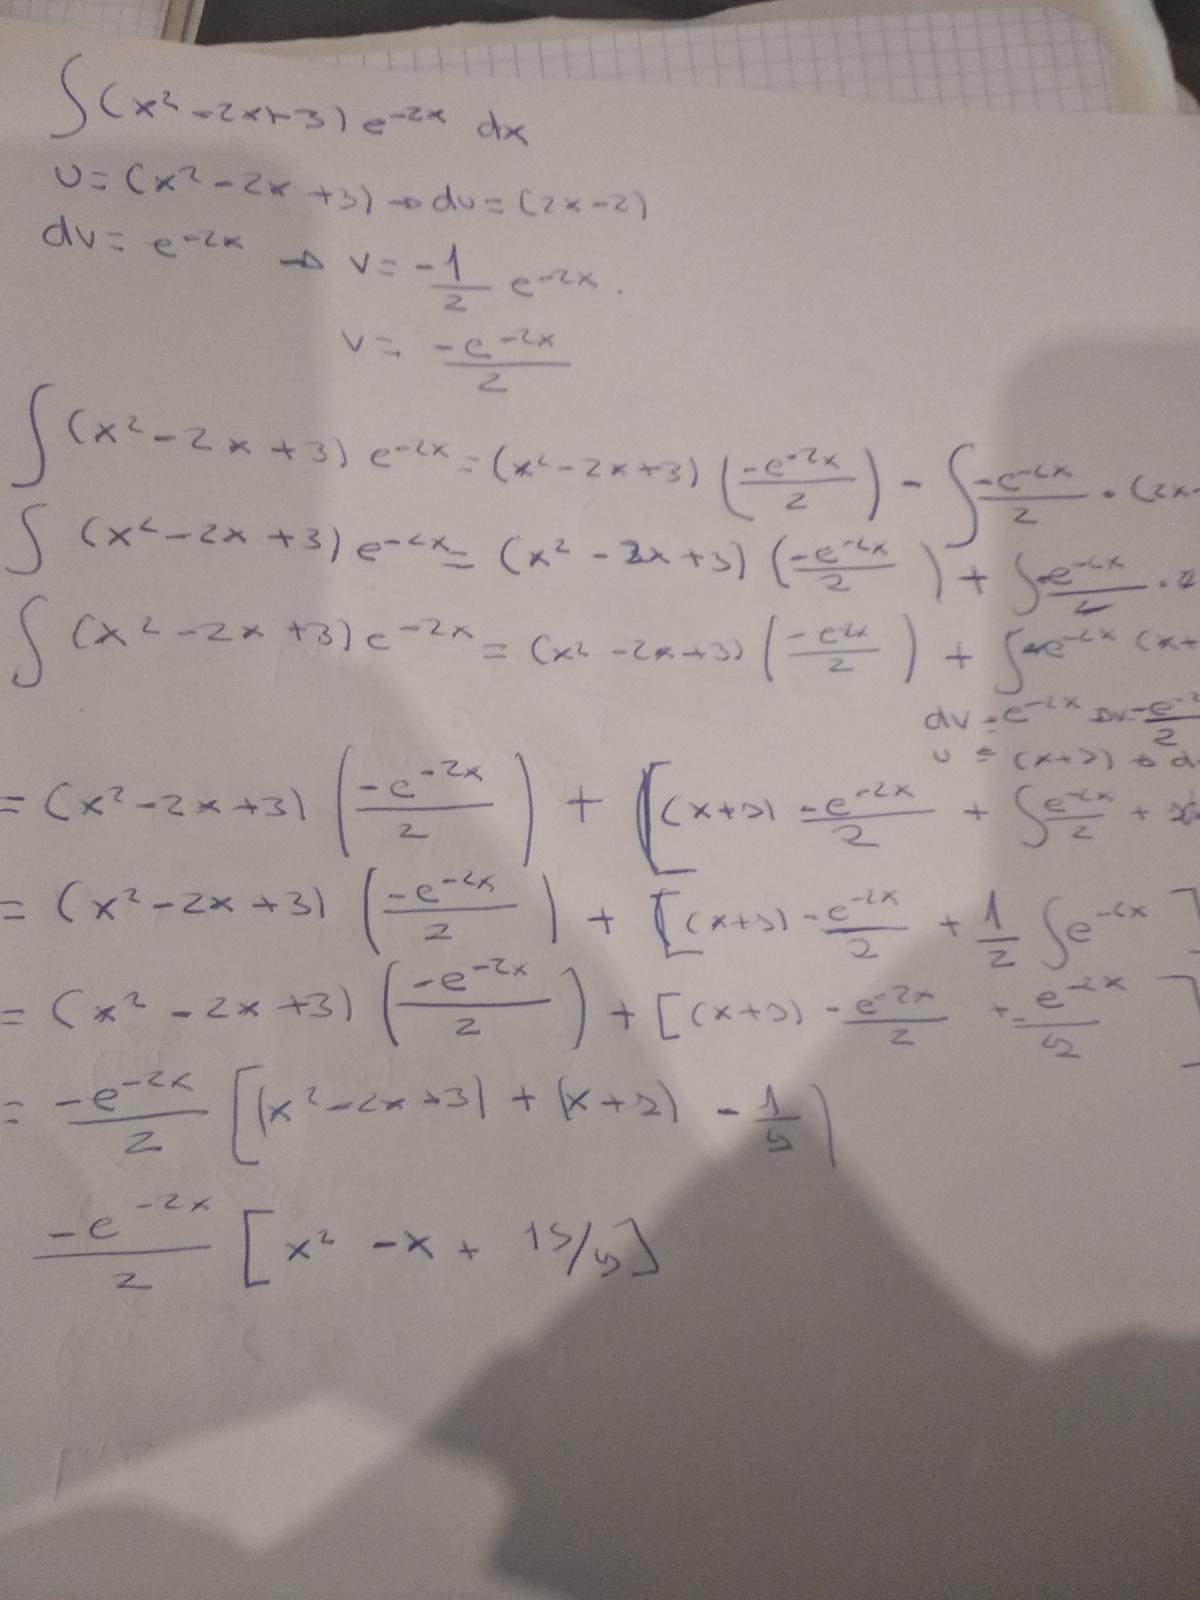 ∫(x² - 2x + 3) e^-2x dx
u = (x² - 2x + 3) → du = (2x - 2)
dv = e^-2x → v = -1/2 e^-2x .
v = -e^-2x/2
∫(x² - 2x + 3) e^-2x = (x² - 2x + 3) (-e^-2x/2) - ∫ -e^-2x/2 · (2x-
∫ (x² - 2x + 3) e^-2x = (x² - 2x + 3) (-e^-2x/2) + ∫ e^-2x/2 · 2
∫ (x² - 2x + 3) e^-2x = (x² - 2x + 3) (-e^2x/2) + ∫ e^-2x (x+
dv = e^-2x → v = -e^-2/2
u = (x+2) → d
= (x² - 2x + 3) (-e^-2x/2) + [(x+2) -e^-2x/2 + ∫ e^-2x/2 +
= (x² - 2x + 3) (-e^-2x/2) + [(x+2) -e^-2x/2 + 1/2 ∫e^-2x ]
= (x² - 2x + 3) (-e^-2x/2) + [(x+2) - e^-2x/2 + - e^-2x/4 ]
= -e^-2x/2 [(x² - 2x + 3) + (x + 2) - 1/4)
-e^-2x/2 [x² - x + 19/4]